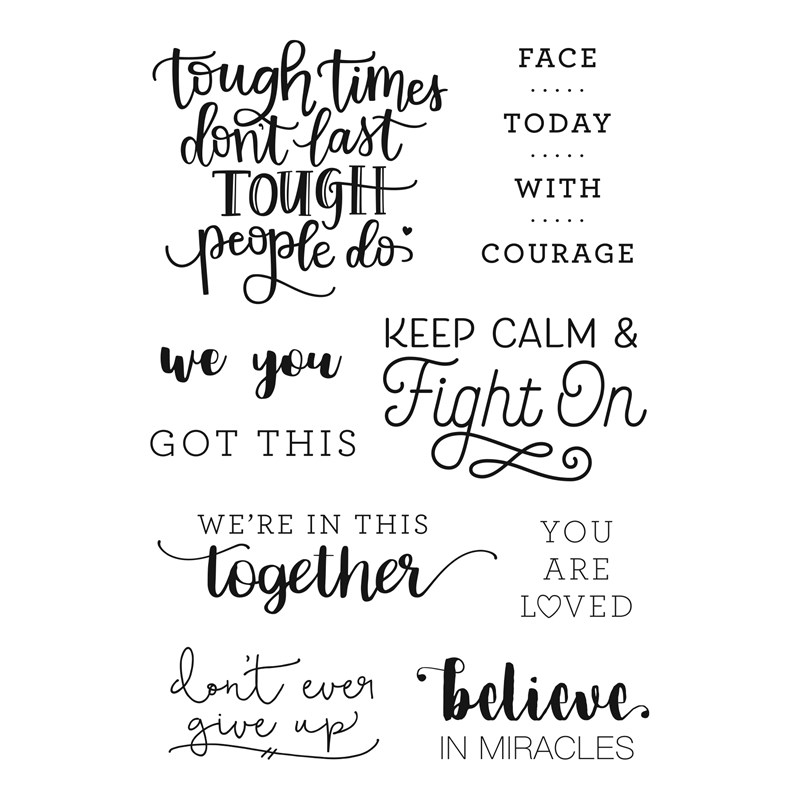 tough times
don't last
TOUGH
people do
FACE
TODAY
WITH
COURAGE
we you
GOT THIS
KEEP CALM &
Fight On
WE'RE IN THIS
together
YOU
ARE
LOVED
don't ever
give up
believe
IN MIRACLES